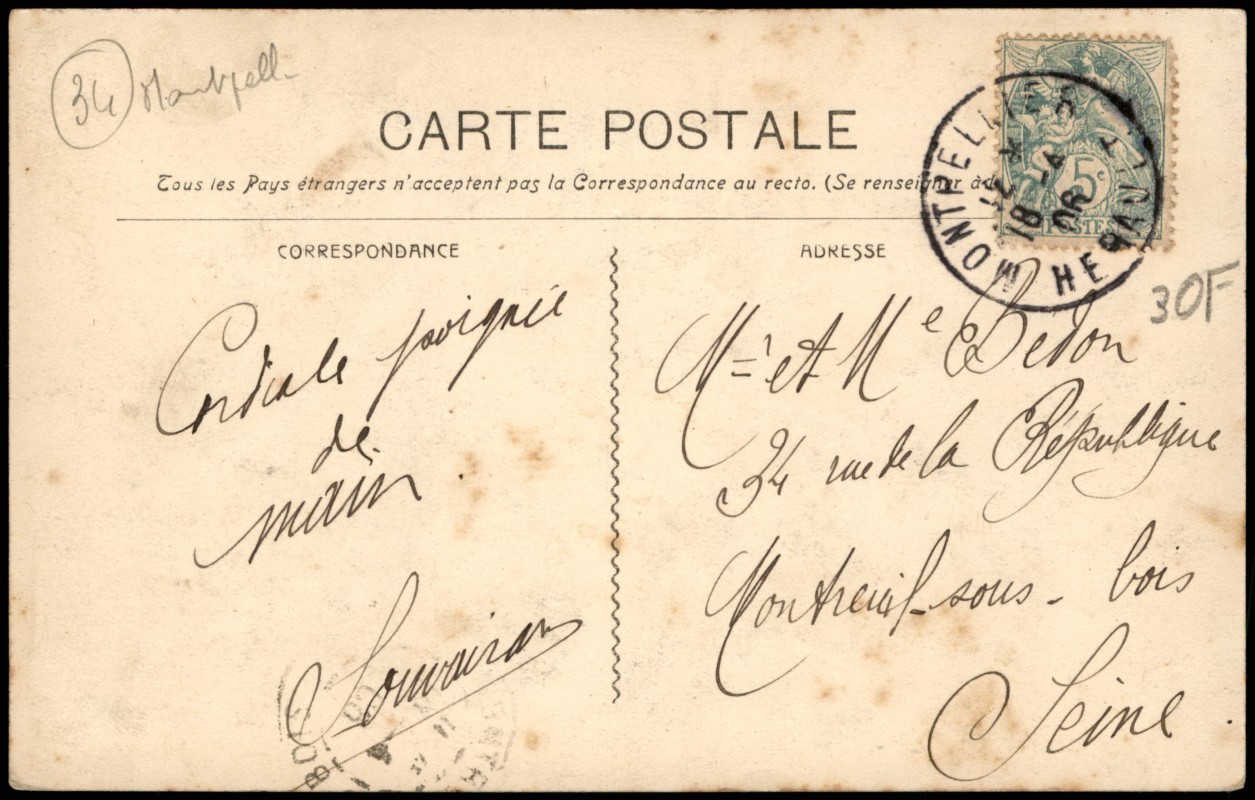 34 Montpell
CARTE POSTALE
Tous les Pays étrangers n'acceptent pas la Correspondance au recto. (Se renseigner à
CORRESPONDANCE
ADRESSE
MONTPELLIER
18 -4
06
HERAULT
5c
POSTES
30F
Cordiale poignée
de
main.
Souvairan
Mr et Me Bédon
34 rue de la République
Montreuil-sous-bois
Seine
BOIS